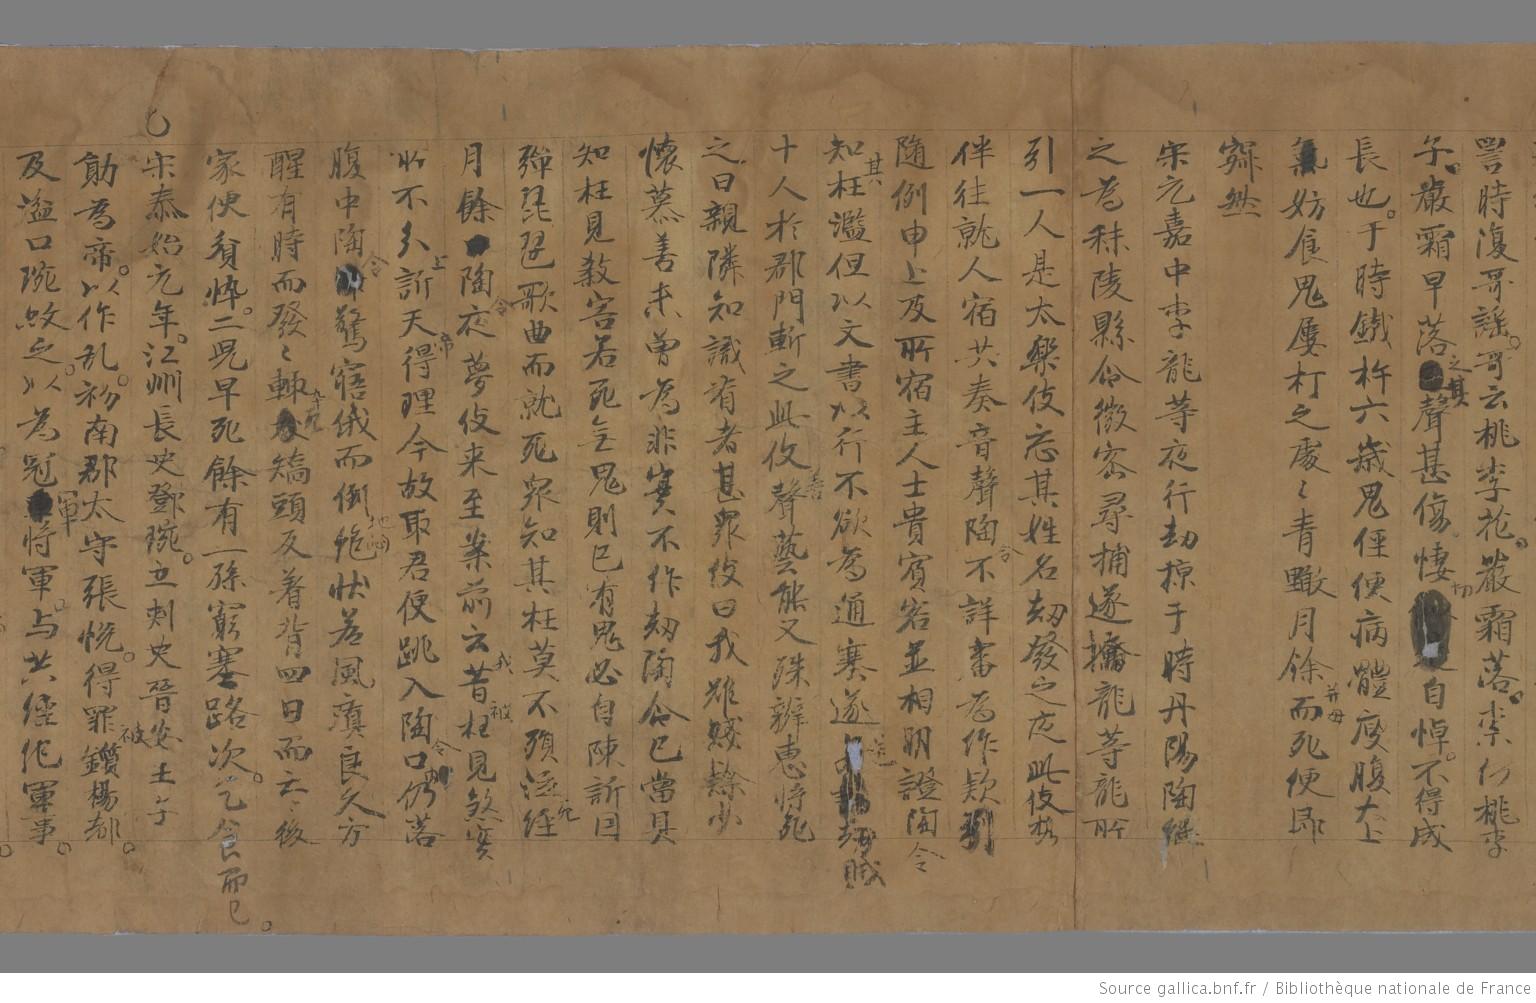 詈時復哥謡哥云桃李花嚴霜落柰何桃李
子嚴霜早落之其聲甚傷悽切自悼不得成
長也于時鐵杵六歲鬼至便病體痩腹大上
氣妨食鬼屢打之處々青黶月餘并母而死便即
寂然
宋元嘉中李龍等夜行劫掠于時丹陽陶継
之為秣陵縣令微密尋捕遂擒龍等龍所
引一人是太樂伎忘其姓名劫發之夜此伎
伴往就人宿共奏音聲陶令不詳審為作款
隨例申上及所宿主人士貴賓客並相明證陶令
知其枉濫但以文書以行不欲為通塞遂并劫賊
十人於郡門斬之此伎聲藝能又殊辯惠將死
之日親隣知識看者甚眾伎曰我雖賤隸少
懐慕善未曾為非實不作劫陶令已當具
知枉見煞害若死無鬼則已有鬼必自陳訴因
彈琵琶歌曲而就死眾知其枉莫不殞泣經
月餘陶令夜夢伎来至案前云昔我枉被見煞實
所不分上訴天帝得理今故取君便跳入陶令口仍落
腹中陶令驚寤俄而倒絶狀若風癲良久方
醒有時而發々輙夭矯頭反着背四日而亡々後
家便貧悴二兒早死餘有一孫窮寒路次乞食而已
宋泰始元年江州長史鄧琬立刺史晉安王子
勛為帝以作乱初南郡太守張恱得罪被鏁楊都
及湓口琬赦之以為冠軍將軍与共經紀軍事
Source gallica.bnf.fr / Bibliothèque nationale de France